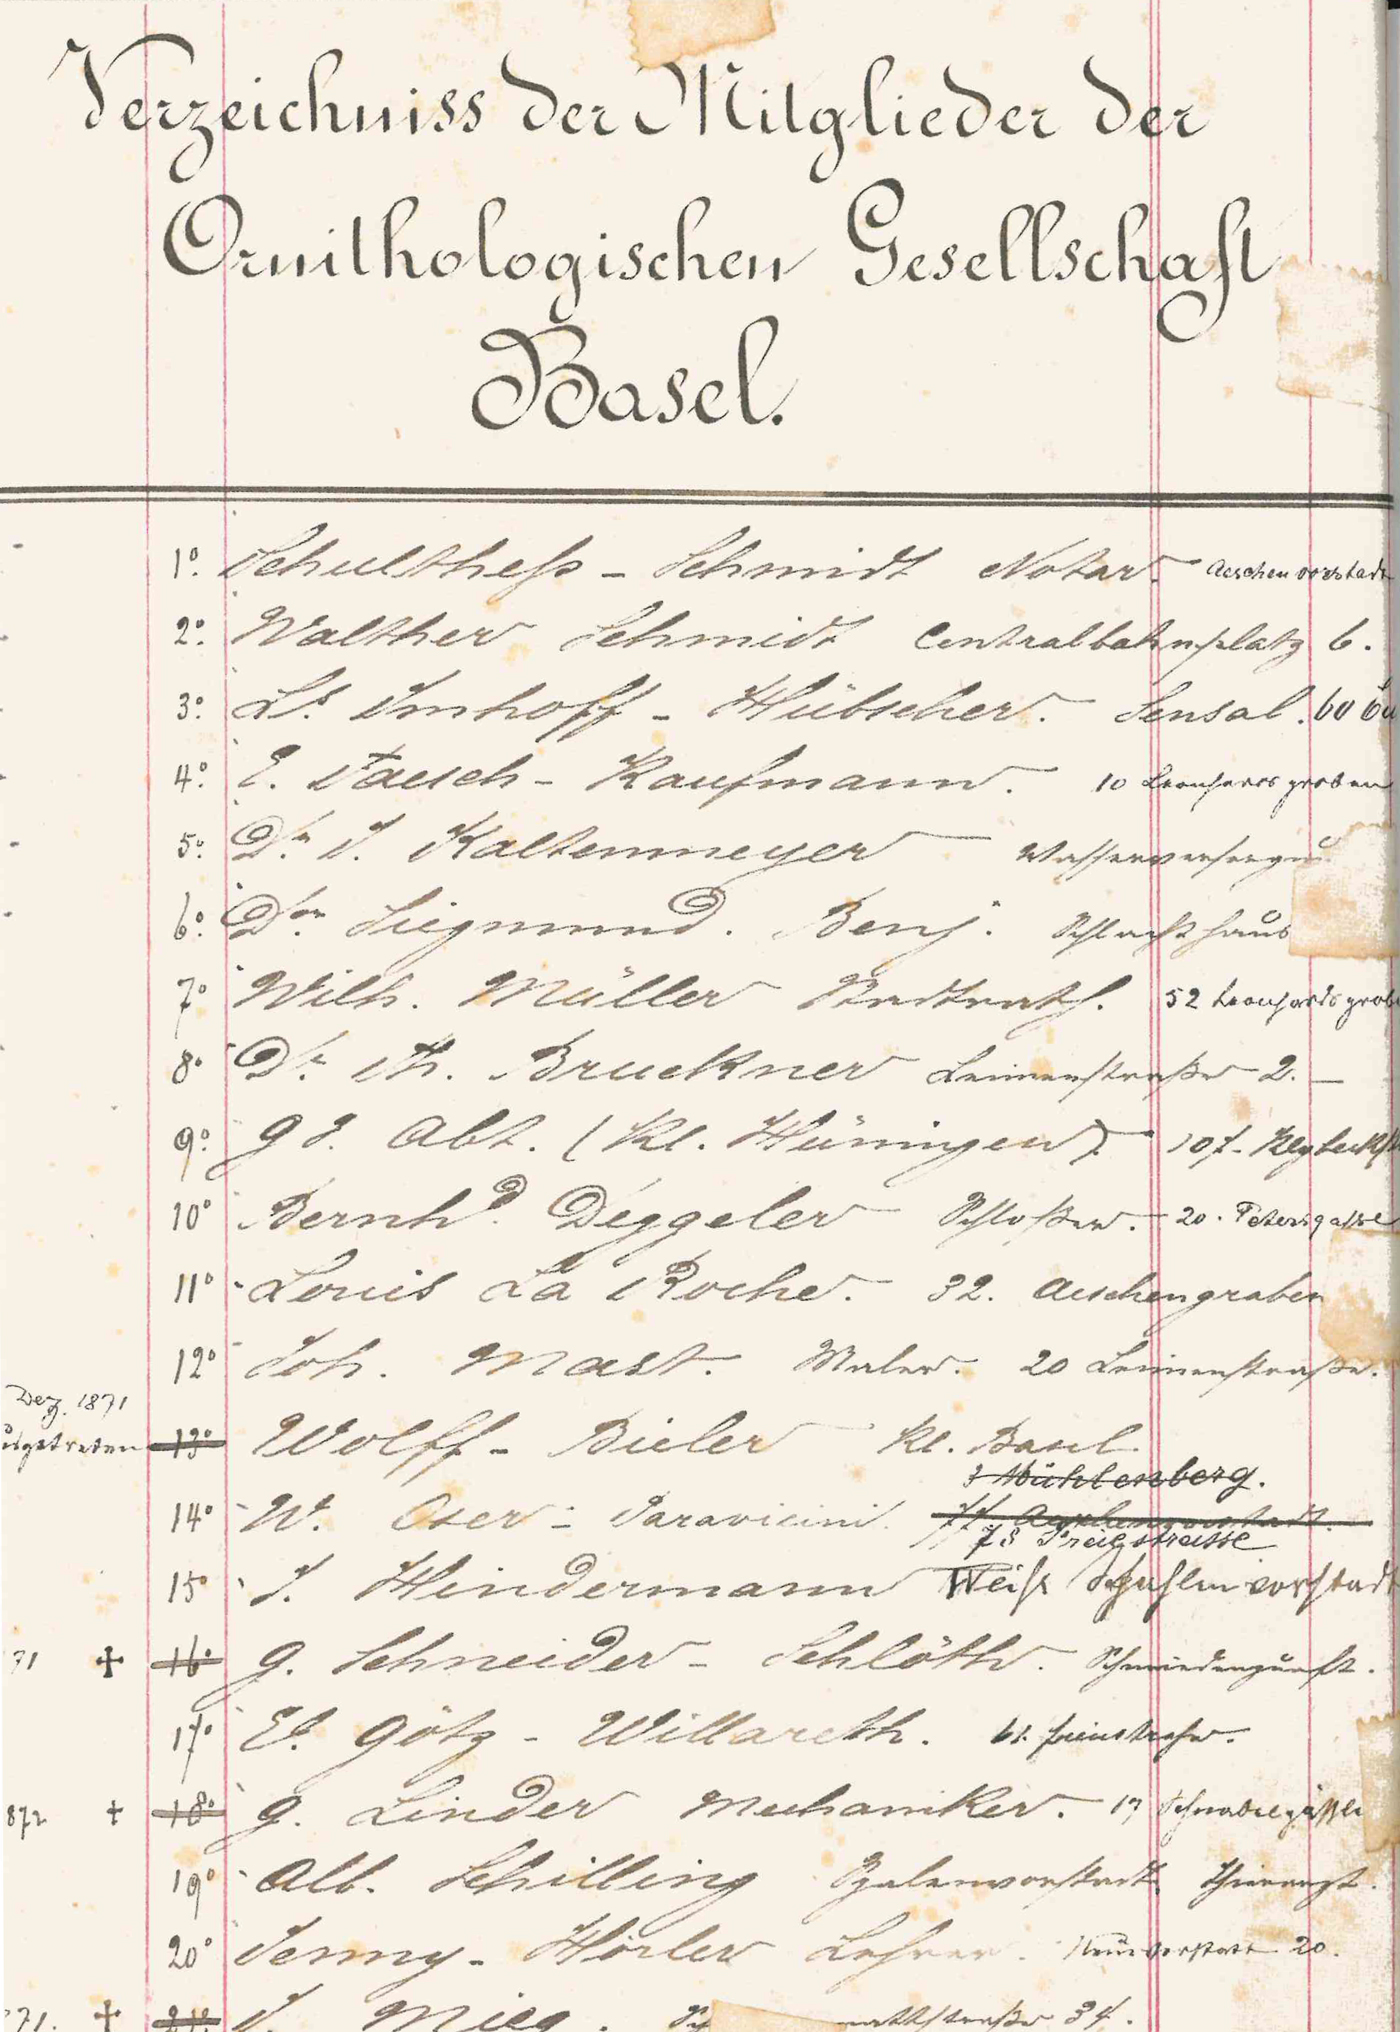 Verzeichniss der Mitglieder der
Ornithologischen Gesellschaft
Basel.
1° Schulthess - Schmidt Notar. Aeschenvorstadt
2° Walther Schmidt Centralbahnplatz 6.
3° Ls. Imhoff - Hübscher. Sensal. 60
4° E. Faesch - Kaufmann. 10 Leonhardsgraben
5° Dr. J. Kaltenmeyer Wasserversorgu
6° Dr. Siegmund. Benj. Schlachthaus
7° Wilh. Müller Stadtrath. 52 Leonhardsgrabe
8° Dr. Th. Bruckner Leimenstraße 2.
9° G E. Abt. (Kl. Hüningen). 107. Klybeckst
10° Bernhd. Deggeler Schloßer. 20. Petersgasse
11° Louis La Roche. 32. Aeschengraben
12° Joh. Mast. Maler. 20 Leimenstraße.
Dez. 1871
usgetreten 13° Wolff - Bieler Kl. Basel.
3 Mühlenberg.
14° W. Oser - Paravicini. 77 Aeschenvorstadt.
78 Freiestrasse
15° J. Hindermann Weiss Spahlenvorstadt
71 ✝ 16° G. Schneider - Schlöth. Schmiedenzunft.
17° Ed. Götz - Willareth. 61. Freiestrasse.
872 ✝ 18° G. Linder Mechaniker. 17 Schnabelgässli
19° Alb. Schilling Spalenvorstadt Thierarzt.
20° Jenny - Hörler Lehrer. Steinvorstadt 20.
71. ✝ 21° J. Mieg. mattstraße 34.